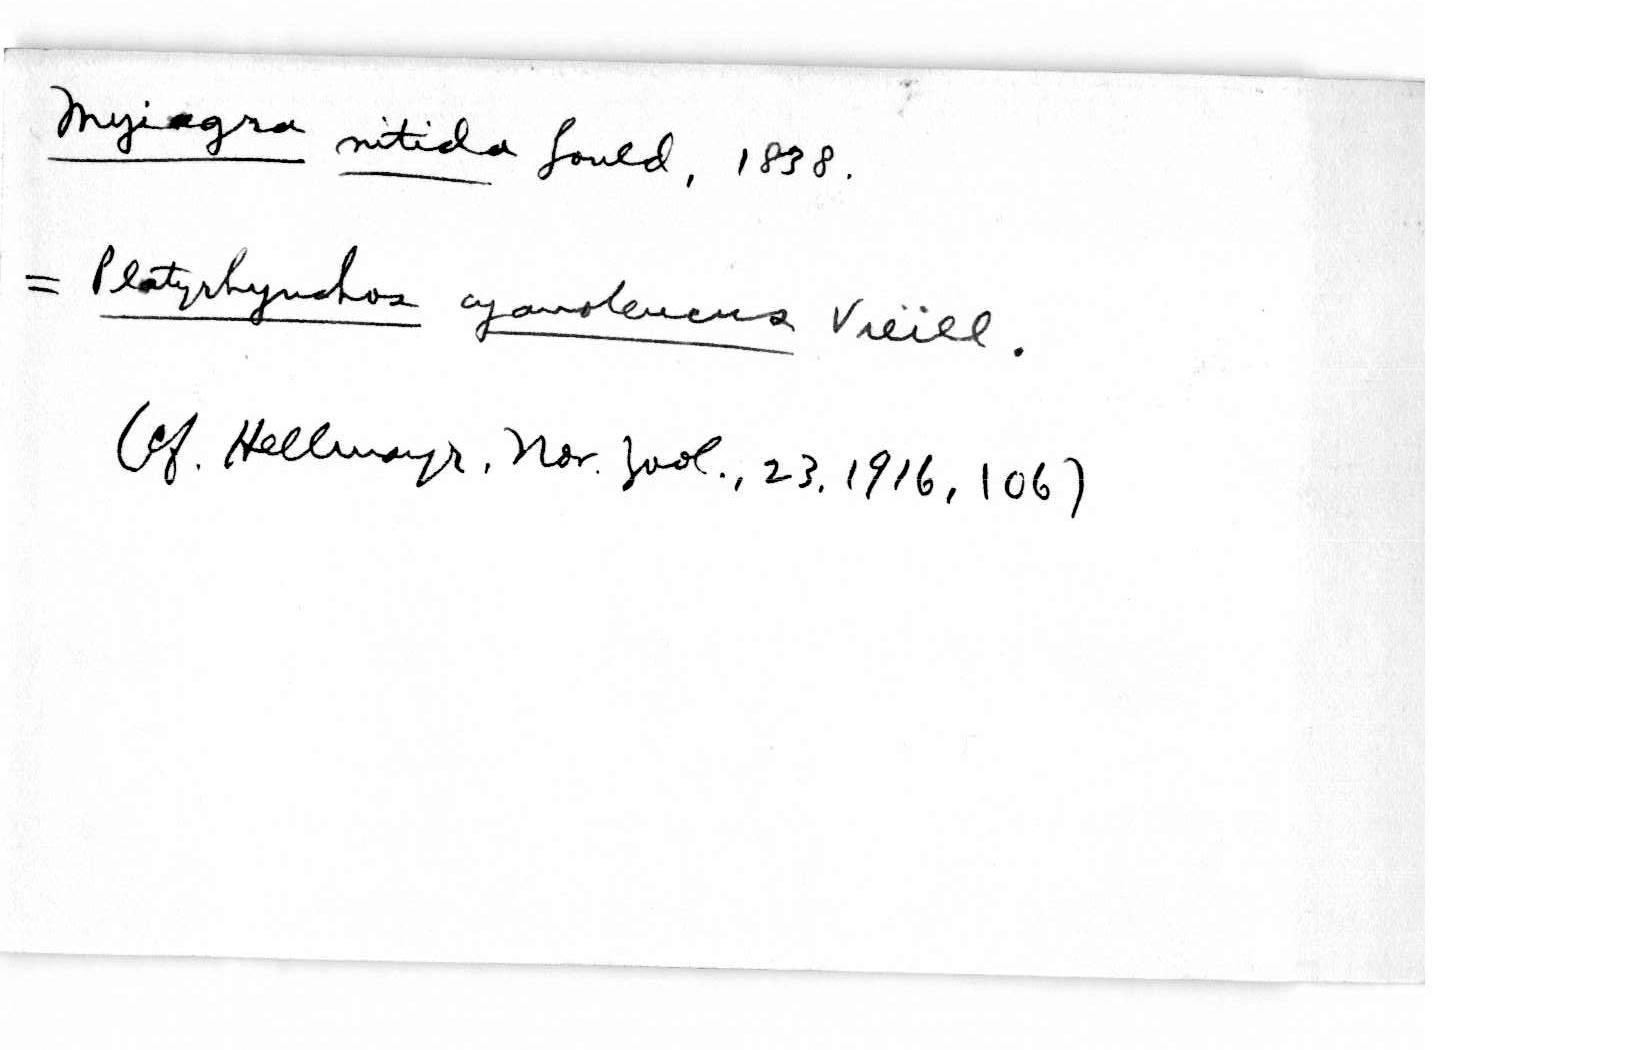 Myiagra nitida Gould, 1838.
= Platyrhynchos cyanoleucus Vieill.
(Cf. Hellmayr, Nov. Zool., 23, 1916, 106)